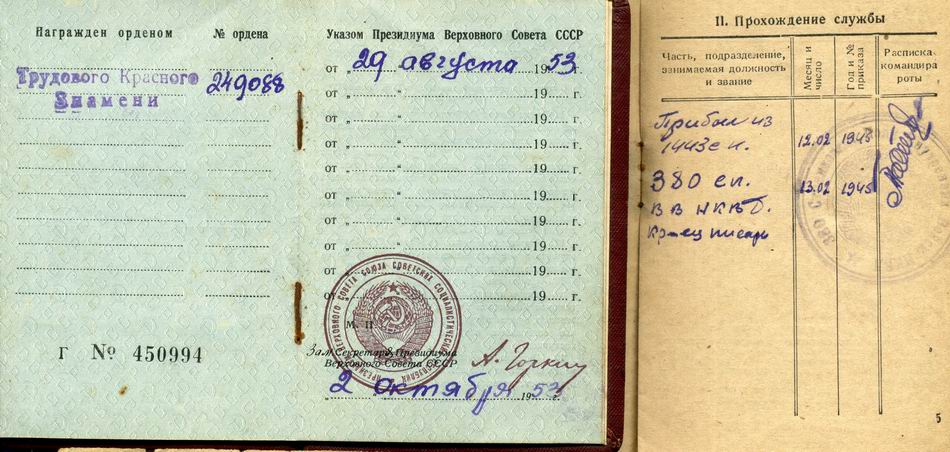 Награжден орденом № ордена
Трудового Красного 249088
Знамени
Г № 450994
Указом Президиума Верховного Совета СССР
от „ 29 “ августа 1953 г.
от „ “ 19 г.
от „ “ 19 г.
от „ “ 19 г.
от „ “ 19 г.
от „ “ 19 г.
от „ “ 19 г.
от „ “ 19 г.
от „ “ 19 г.
от 19 г.
М. П.
Зам Секретарь Президиума
Верховного Совета СССР
2 октября 1953 г.
II. Прохождение службы
Часть, подразделение, занимаемая должность и звание
Месяц и число
Год и № приказа
Расписка командира роты
Прибыл из 12.02 1945
380 сп. 13.02 1945
ВВ НКВД.
5